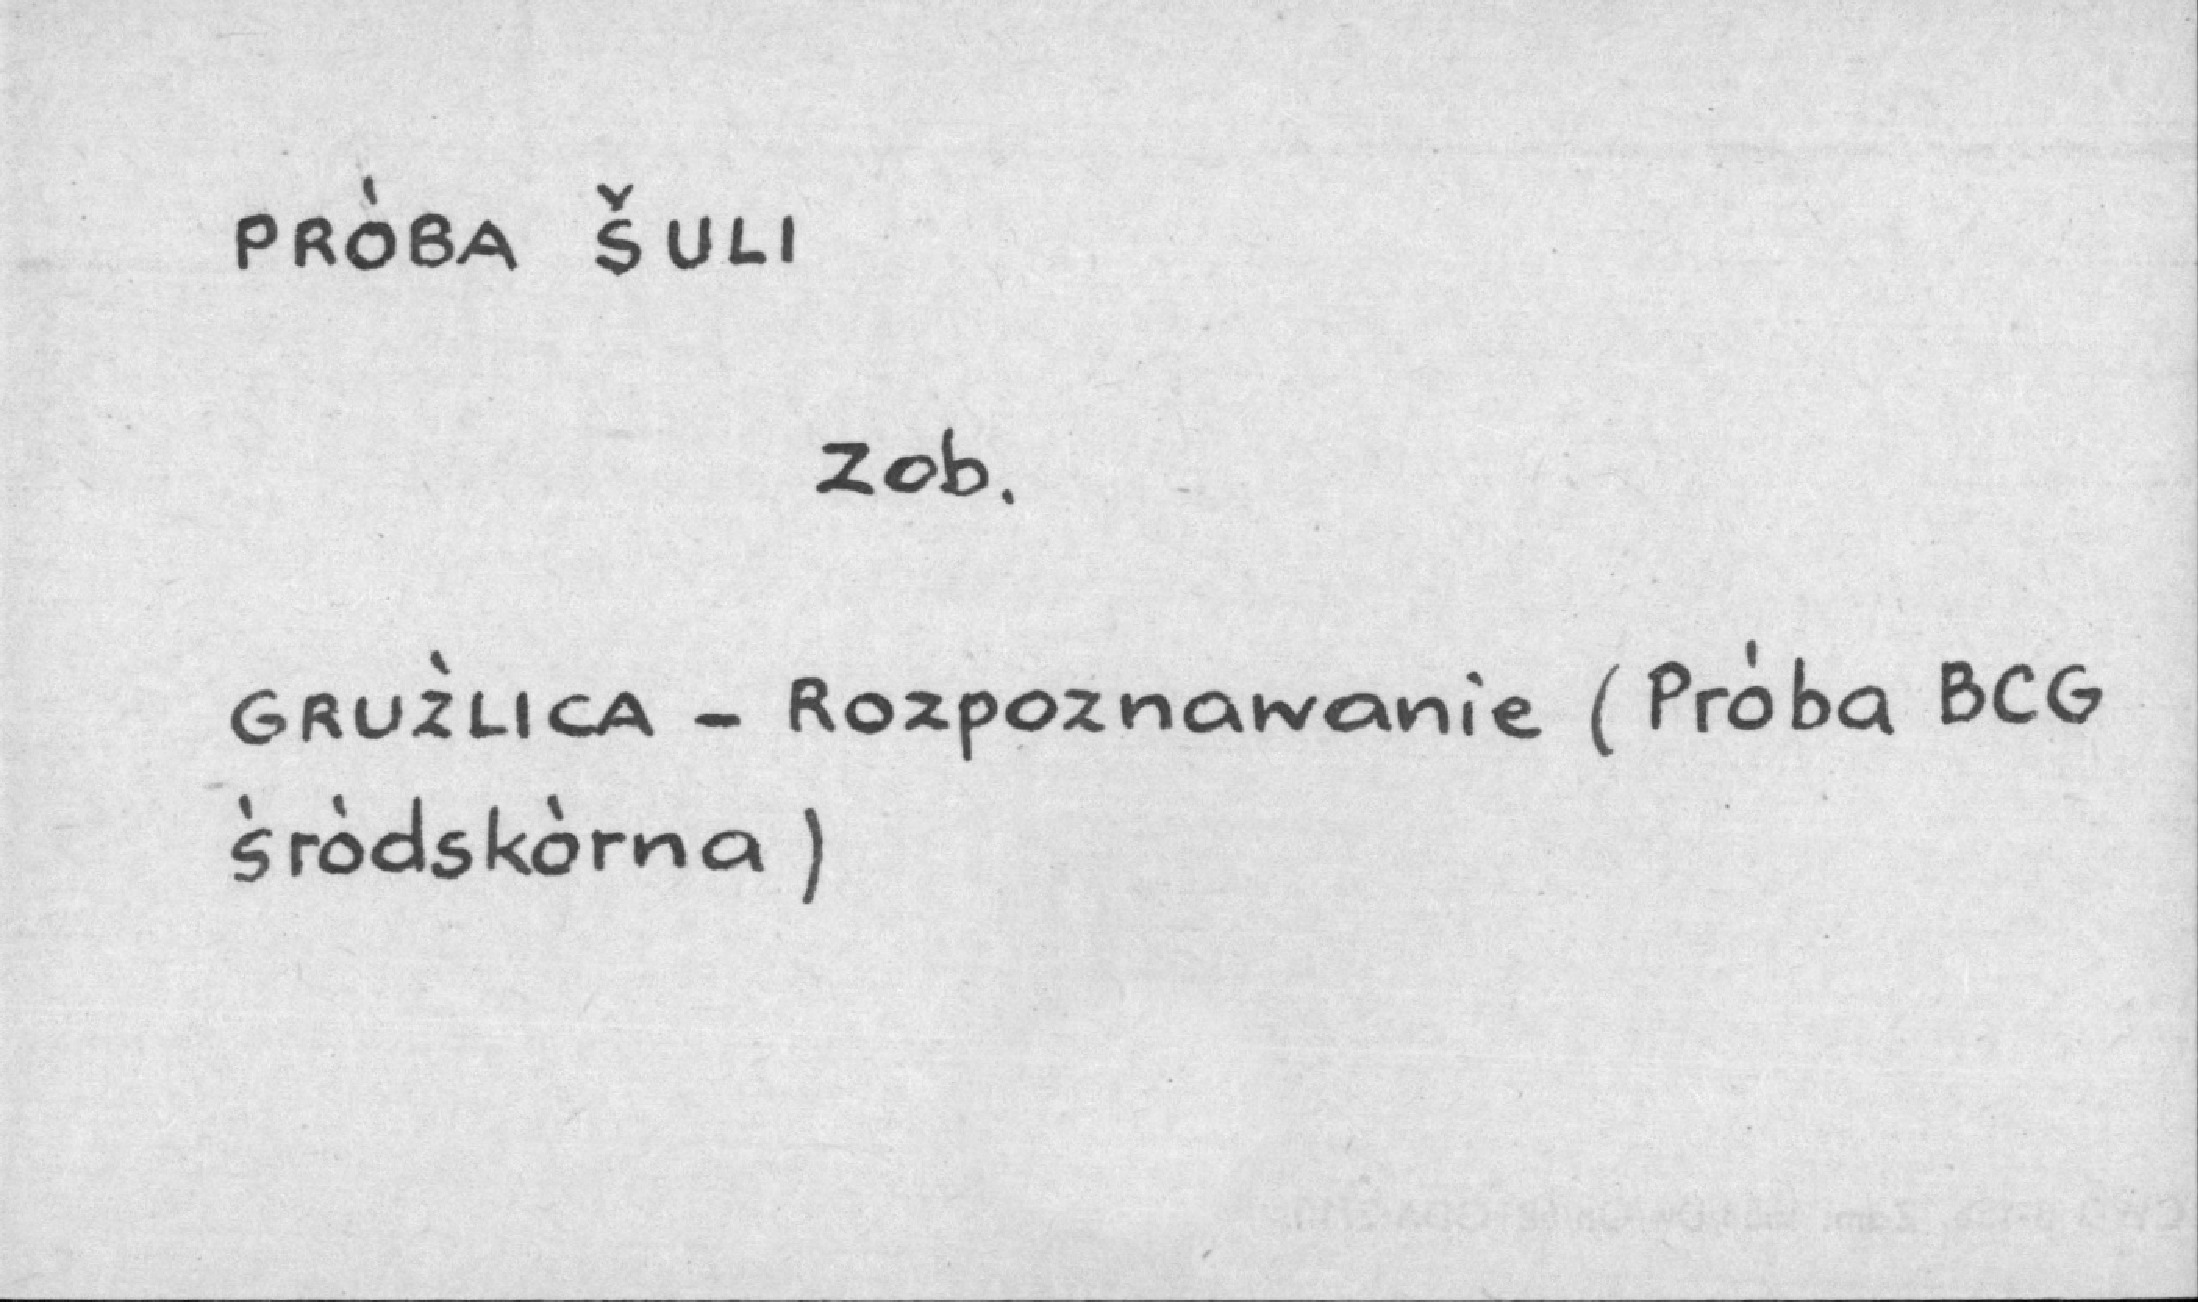 PRÓBA ŠULI
Zob.
GRUŹLICA - Rozpoznawanie (Próba BCG
śródskórna)